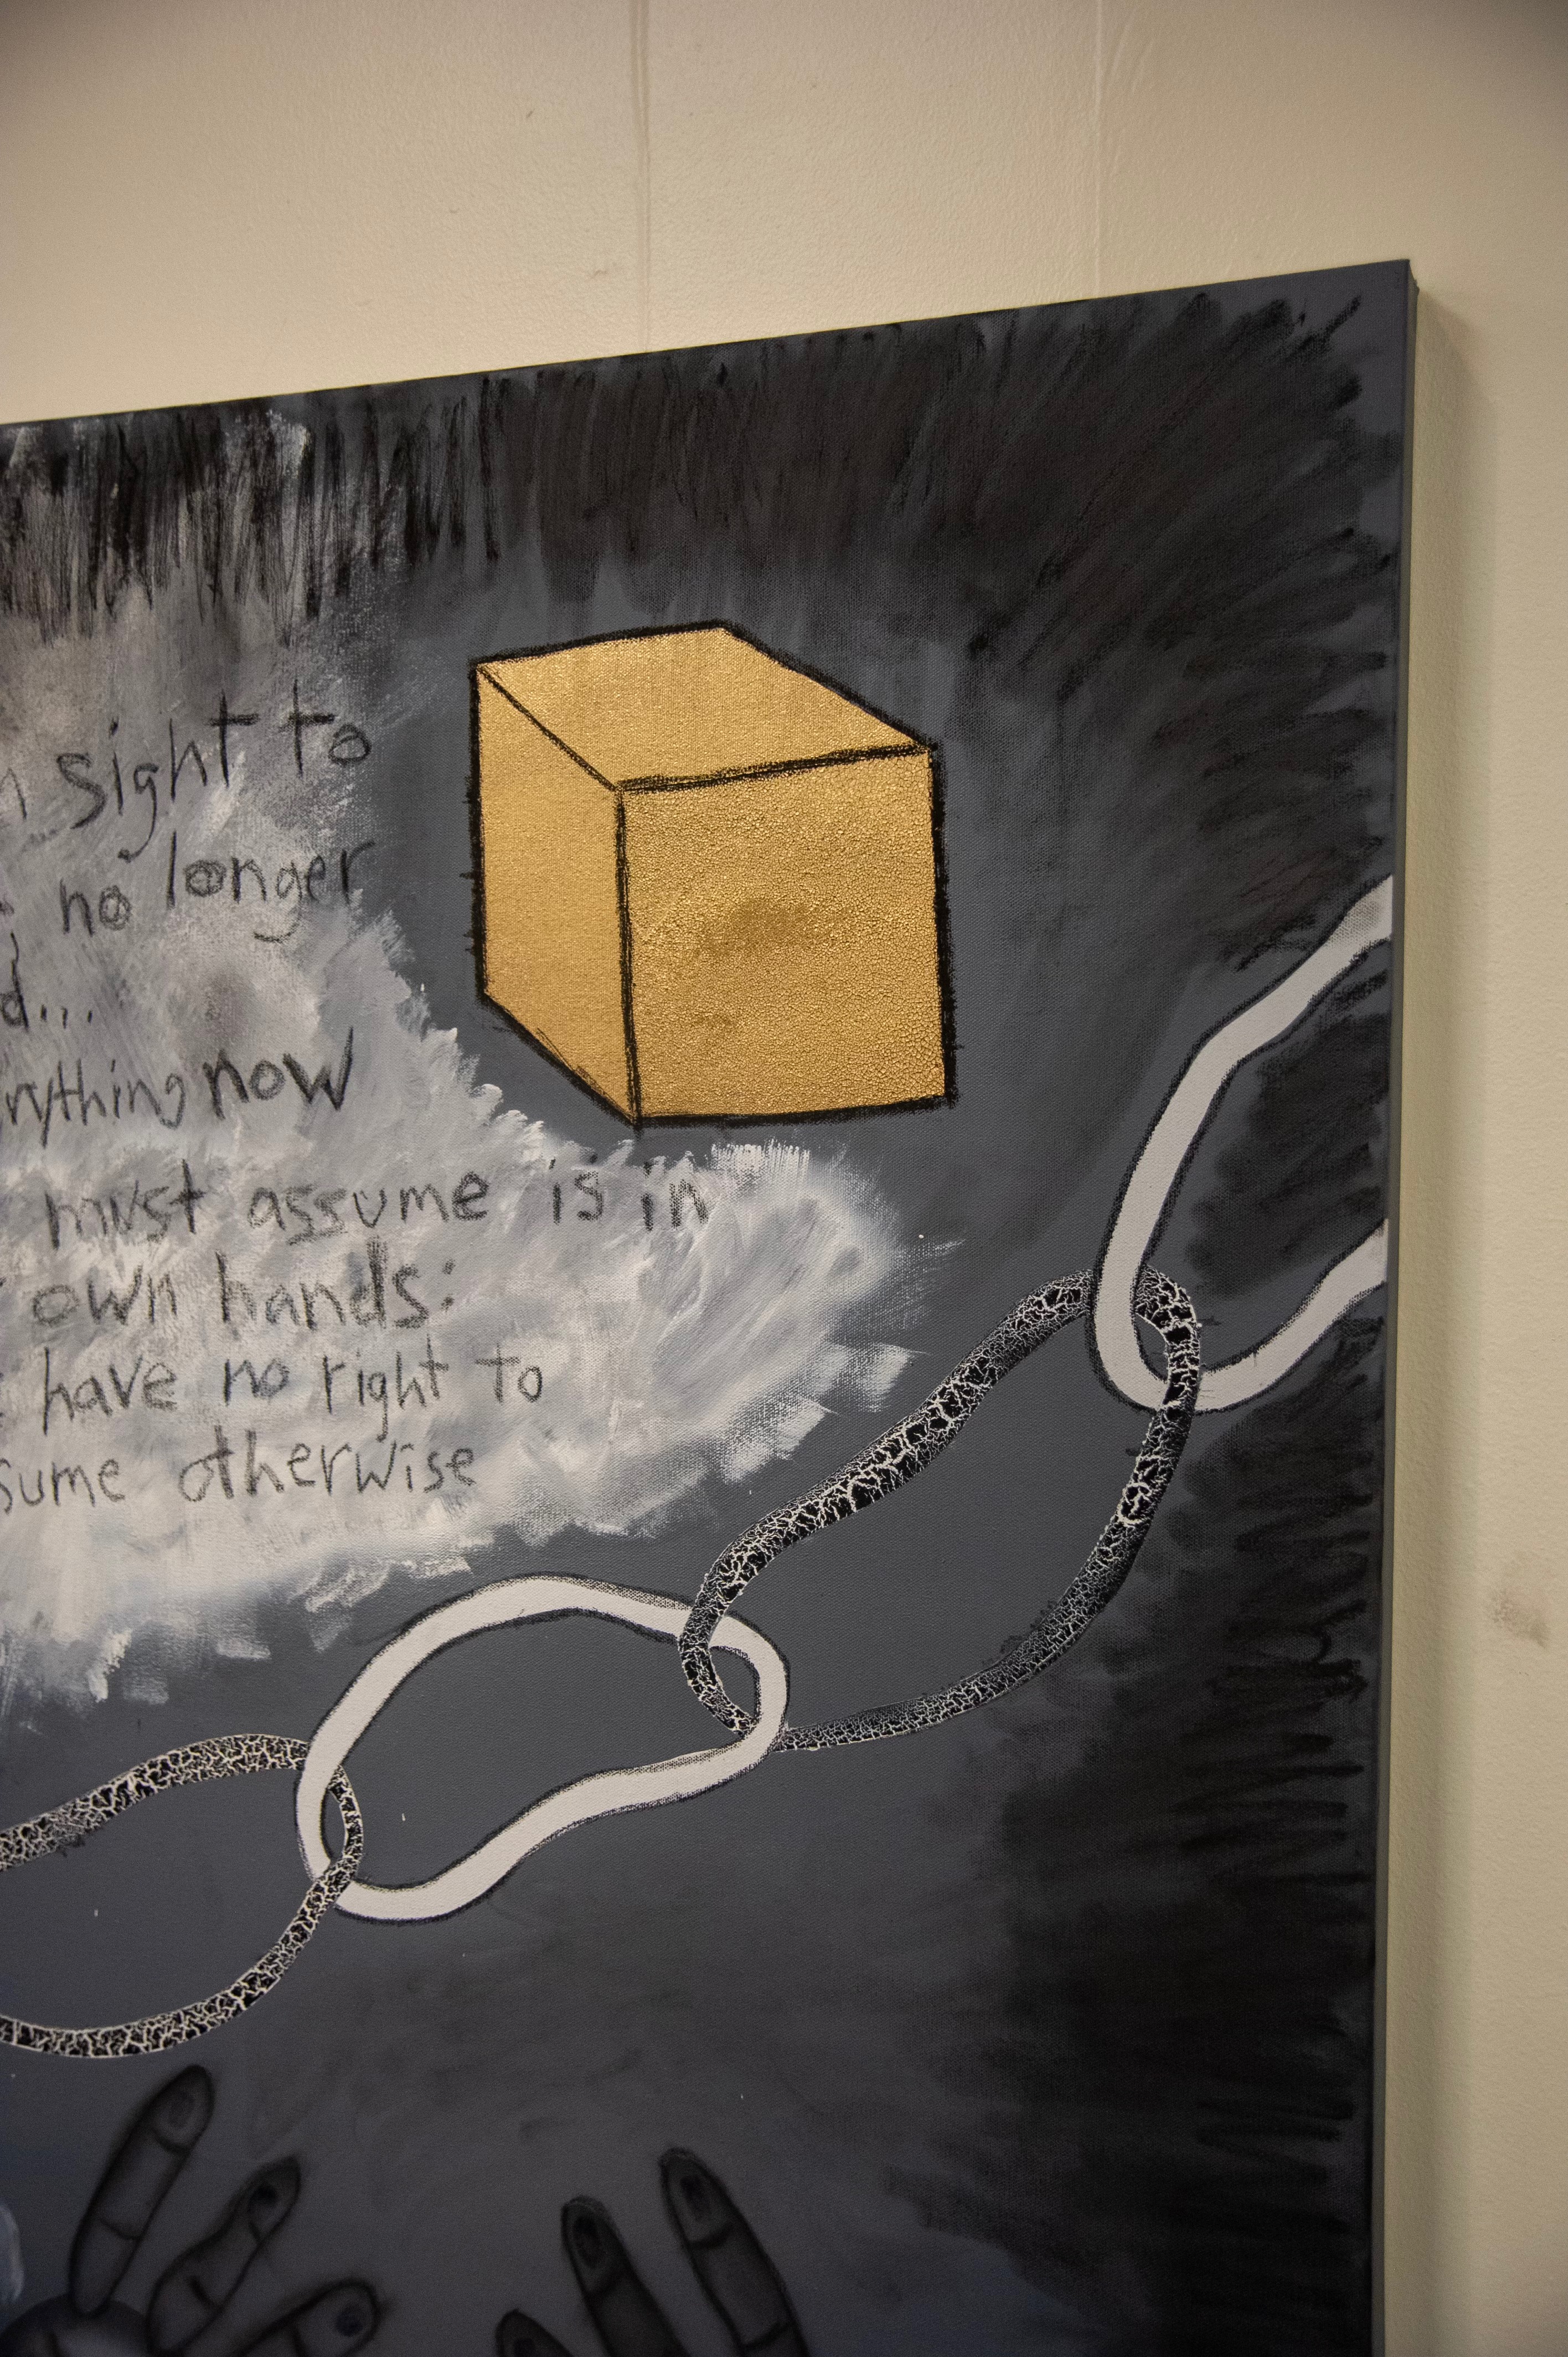 sight to
no longer
d...
rything now
must assume is in
own hands:
have no right to
sume otherwise